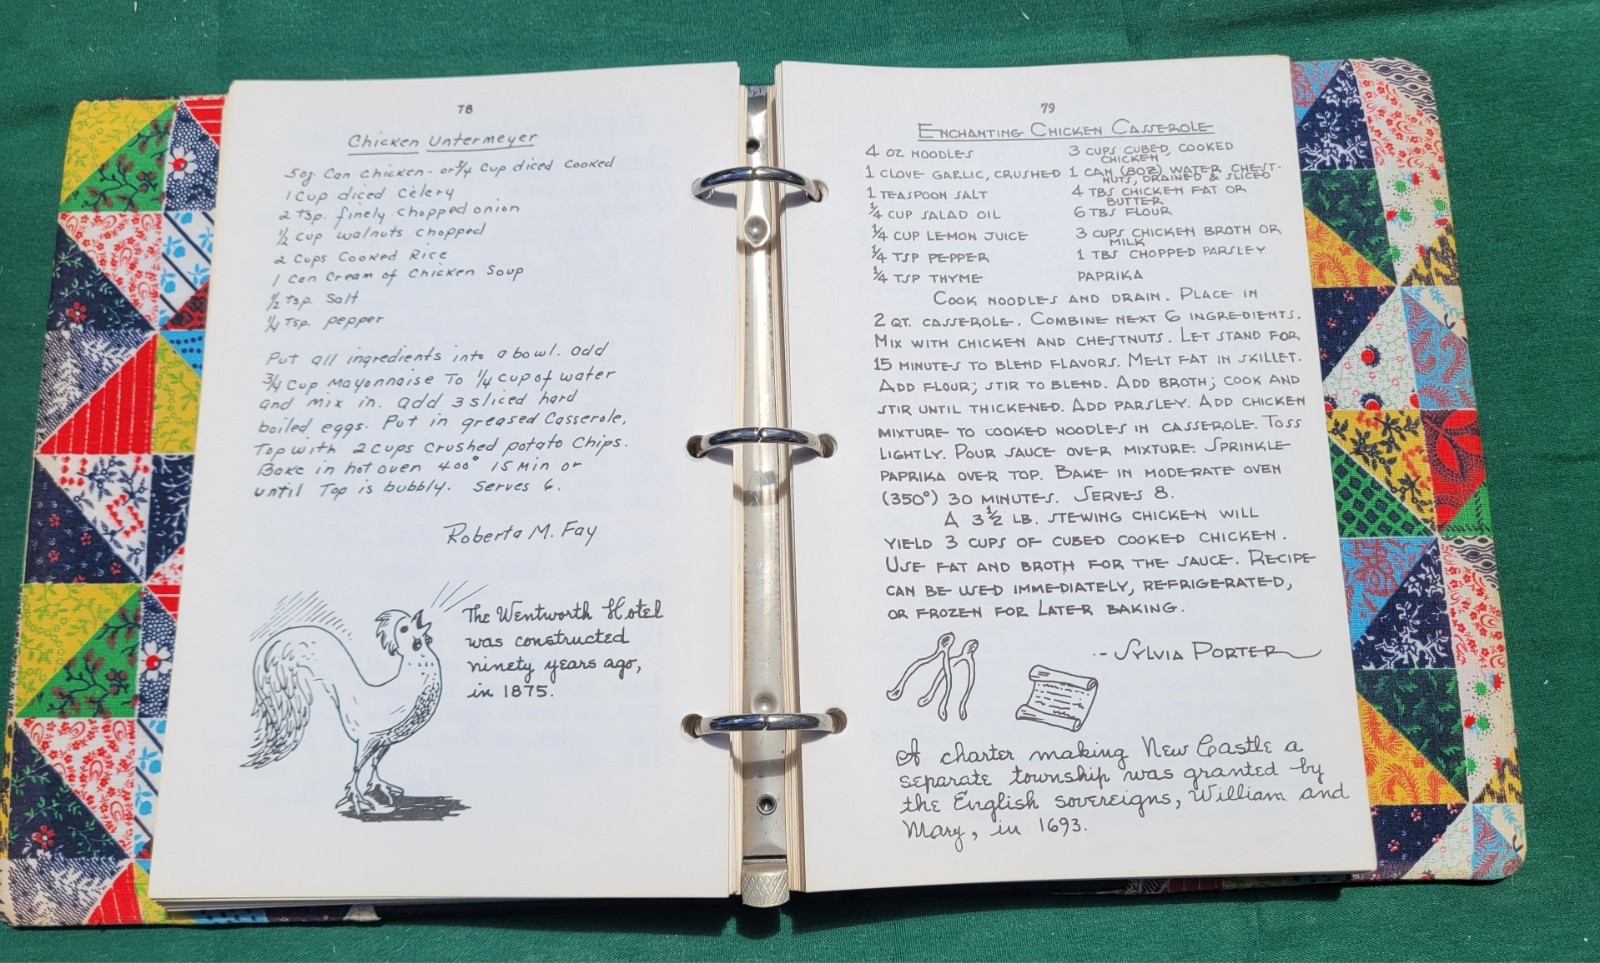 78
Chicken Untermeyer
5oz Can Chicken - or 3/4 Cup diced Cooked
1 Cup diced Celery
2 Tsp. finely chopped onion
1/2 cup walnuts chopped
2 Cups Cooked Rice
1 Can Cream of Chicken Soup
1/2 Tsp. Salt
1/4 Tsp. pepper
Put all ingredients into a bowl. add
3/4 cup Mayonnaise To 1/4 cup of water
and mix in. add 3 sliced hard
boiled eggs. Put in greased Casserole,
Top with 2 cups crushed potato Chips.
Bake in hot oven 400° 15 Min or
until Top is bubbly. Serves 6.
Roberta M. Fay
The Wentworth Hotel
was constructed
ninety years ago,
in 1875.
79
ENCHANTING CHICKEN CASSEROLE
4 OZ NOODLES
1 CLOVE GARLIC, CRUSHED
1 TEASPOON SALT
1/4 CUP SALAD OIL
1/4 CUP LEMON JUICE
1/4 TSP PEPPER
1/4 TSP THYME
3 CUPS CUBED, COOKED
CHICKEN
1 CAN (8OZ) WATER CHEST-
NUTS, DRAINED & SLICED
4 TBS CHICKEN FAT OR
BUTTER
6 TBS FLOUR
3 CUPS CHICKEN BROTH OR
MILK
1 TBS CHOPPED PARSLEY
PAPRIKA
COOK NOODLES AND DRAIN. PLACE IN
2 QT. CASSEROLE. COMBINE NEXT 6 INGREDIENTS.
MIX WITH CHICKEN AND CHESTNUTS. LET STAND FOR
15 MINUTES TO BLEND FLAVORS. MELT FAT IN SKILLET.
ADD FLOUR; STIR TO BLEND. ADD BROTH; COOK AND
STIR UNTIL THICKENED. ADD PARSLEY. ADD CHICKEN
MIXTURE TO COOKED NOODLES IN CASSEROLE. TOSS
LIGHTLY. POUR SAUCE OVER MIXTURE. SPRINKLE
PAPRIKA OVER TOP. BAKE IN MODERATE OVEN
(350°) 30 MINUTES. SERVES 8.
A 3 1/2 LB. STEWING CHICKEN WILL
YIELD 3 CUPS OF CUBED COOKED CHICKEN.
USE FAT AND BROTH FOR THE SAUCE. RECIPE
CAN BE USED IMMEDIATELY, REFRIGERATED,
OR FROZEN FOR LATER BAKING.
-- SYLVIA PORTER
A charter making New Castle a
separate township was granted by
the English sovereigns, William and
Mary, in 1693.